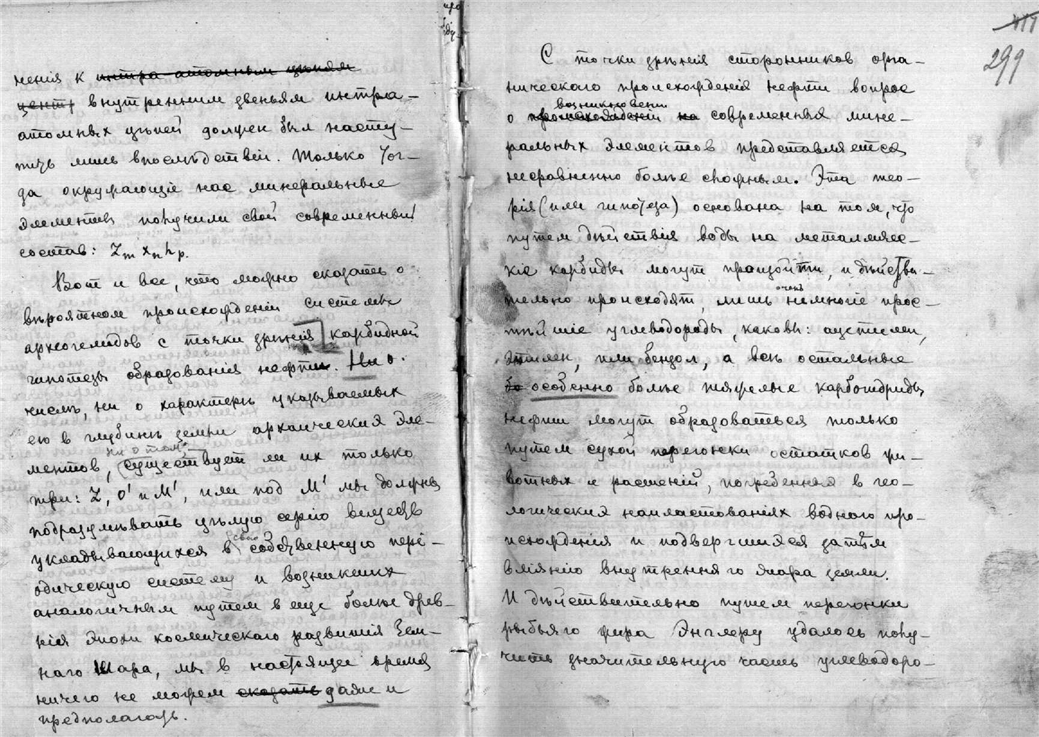 ненія к интра-атомным цѣпям
внутренним звеньям интра-
атомных цѣпей должен был насту-
пить лишь впослѣдствіи. Только тог-
да окружающіе нас минеральные
элементы получили свой современный
состав: Zm xn hp.
Вот и все, что можно сказать о
вѣроятном происхожденіи системы
археогелидов с точки зрѣнія карбидной
гипотезы образованія нефти. Ни о
числѣ, ни о характерѣ указываемых
ею в глубинѣ земли архаических эле-
ментов, ни о том, существует ли их только
три: Z, O' и M', или под M' мы должны
подразумѣвать цѣлую серію веществ
укладывающихся в свою собственную пері-
одическую систему и возникших
аналогичным путем в еще болѣе древ-
нія эпохи космическаго развитія Зем-
наго шара, мы в настоящее время
ничего не можем сказать даже и
предполагать.
299
С точки зрѣнія сторонников орга-
ническаго происхожденія нефти вопрос
возникновении
о происхождении современных мине-
ральных элементов представляется
несравненно болѣе сложным. Эта тео-
рія (или гипотеза) основана на том, что
путем дѣйствія воды на металличес-
кіе карбиды могут произойти, и дѣйстви-
тельно происходят, лишь очень немногіе прос-
тѣйшіе углеводороды, каковы: ацетилен,
этилен, или бензол, а всѣ остальные
особенно болѣе тяжелые карбогидриды
нефти могут образоваться только
путем сухой перегонки остатков жи-
вотных и растеній, погребенных в гео-
логических напластованіях воднаго про-
исхожденія и подвергшихся затѣм
вліянію внутренняго жара земли.
И дѣйствительно путем перегонки
рыбьяго жира Энглеру удалось полу-
чить значительную часть углеводоро-